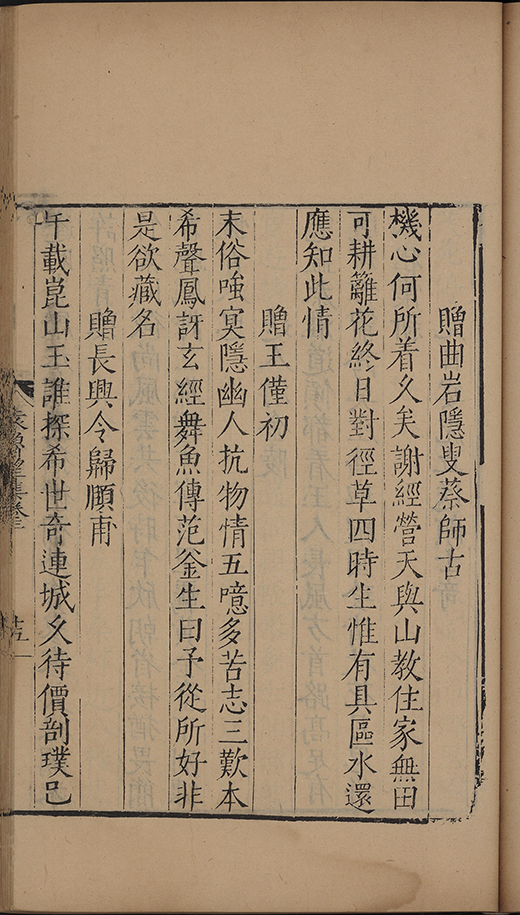 贈曲岩隱叟蔡師古
機心何所着久矣謝經營天與山教住家無田
可耕籬花終日對徑草四時生惟有具區水還
應知此情
贈王僅初
末俗嗤冥隱幽人抗物情五噫多苦志三歎本
希聲鳳訝玄經舞魚傳范釜生曰予從所好非
是欲藏名
贈長興令歸順甫
午載崑山玉誰探希世奇連城久待價剖璞已
袁魯望集卷三
十五